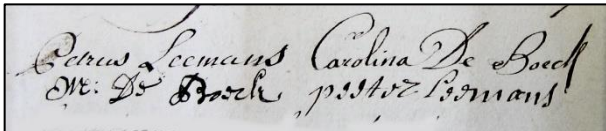 Petrus Leemans Carolina De Boeck
M: De Boeck peeter Leemans